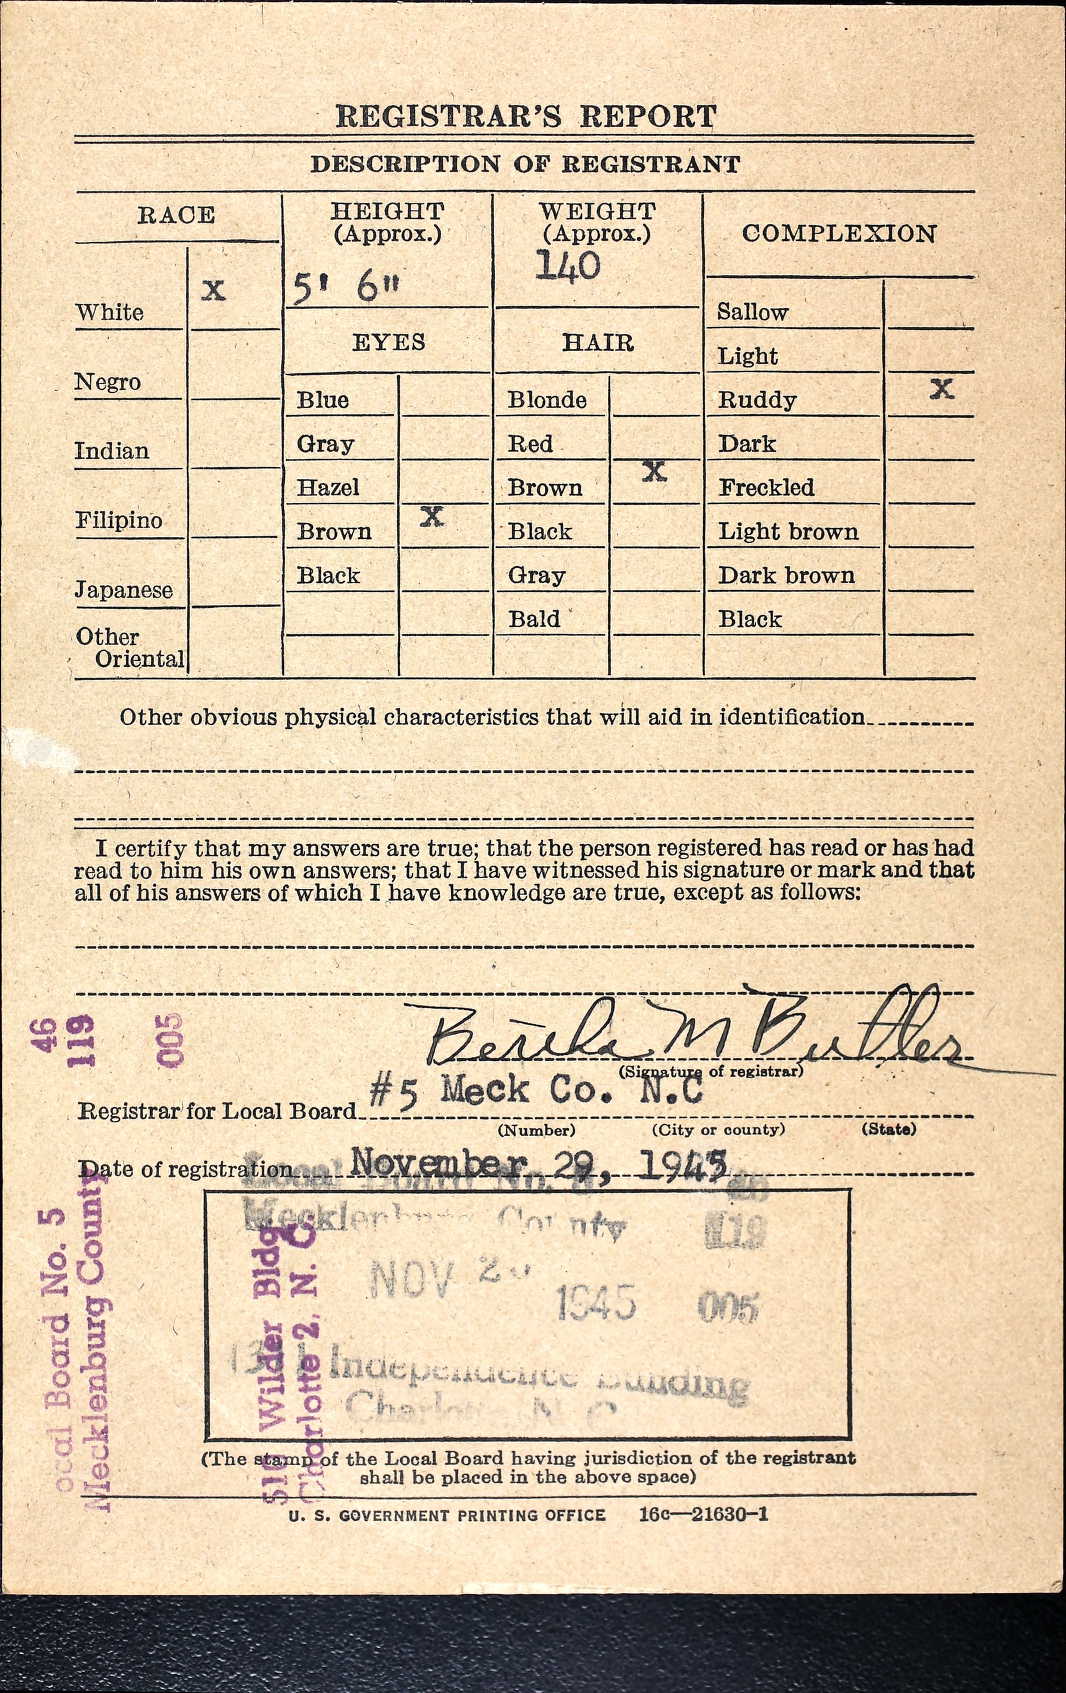 REGISTRAR'S REPORT
DESCRIPTION OF REGISTRANT
RACE
White X
Negro
Indian
Filipino
Japanese
Other
Oriental
HEIGHT
(Approx.)
5' 6"
WEIGHT
(Approx.)
140
EYES
Blue
Gray
Hazel
Brown X
Black
HAIR
Blonde
Red
Brown X
Black
Gray
Bald
COMPLEXION
Sallow
Light
Ruddy X
Dark
Freckled
Light brown
Dark brown
Black
Other obvious physical characteristics that will aid in identification
I certify that my answers are true; that the person registered has read or has had
read to him his own answers; that I have witnessed his signature or mark and that
all of his answers of which I have knowledge are true, except as follows:
46
119
005
Bertha M Butler
(Signature of registrar)
Registrar for Local Board #5 Meck Co. N.C
(Number) (City or county) (State)
Date of registration November 29, 1945
Local Board No.
Mecklenburg County 119
NOV 1945 005
Independence Building
Charlotte, N C
Local Board No. 5
Mecklenburg County
510 Wilder Bldg.
Charlotte 2, N. C.
(The stamp of the Local Board having jurisdiction of the registrant
shall be placed in the above space)
U. S. GOVERNMENT PRINTING OFFICE 16c—21630-1